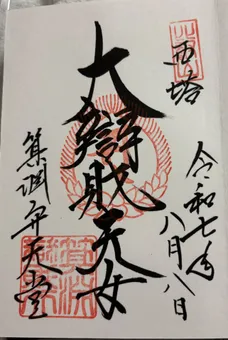 西塔
令和七年八月八日
大辯財天女
箕淵弁天堂